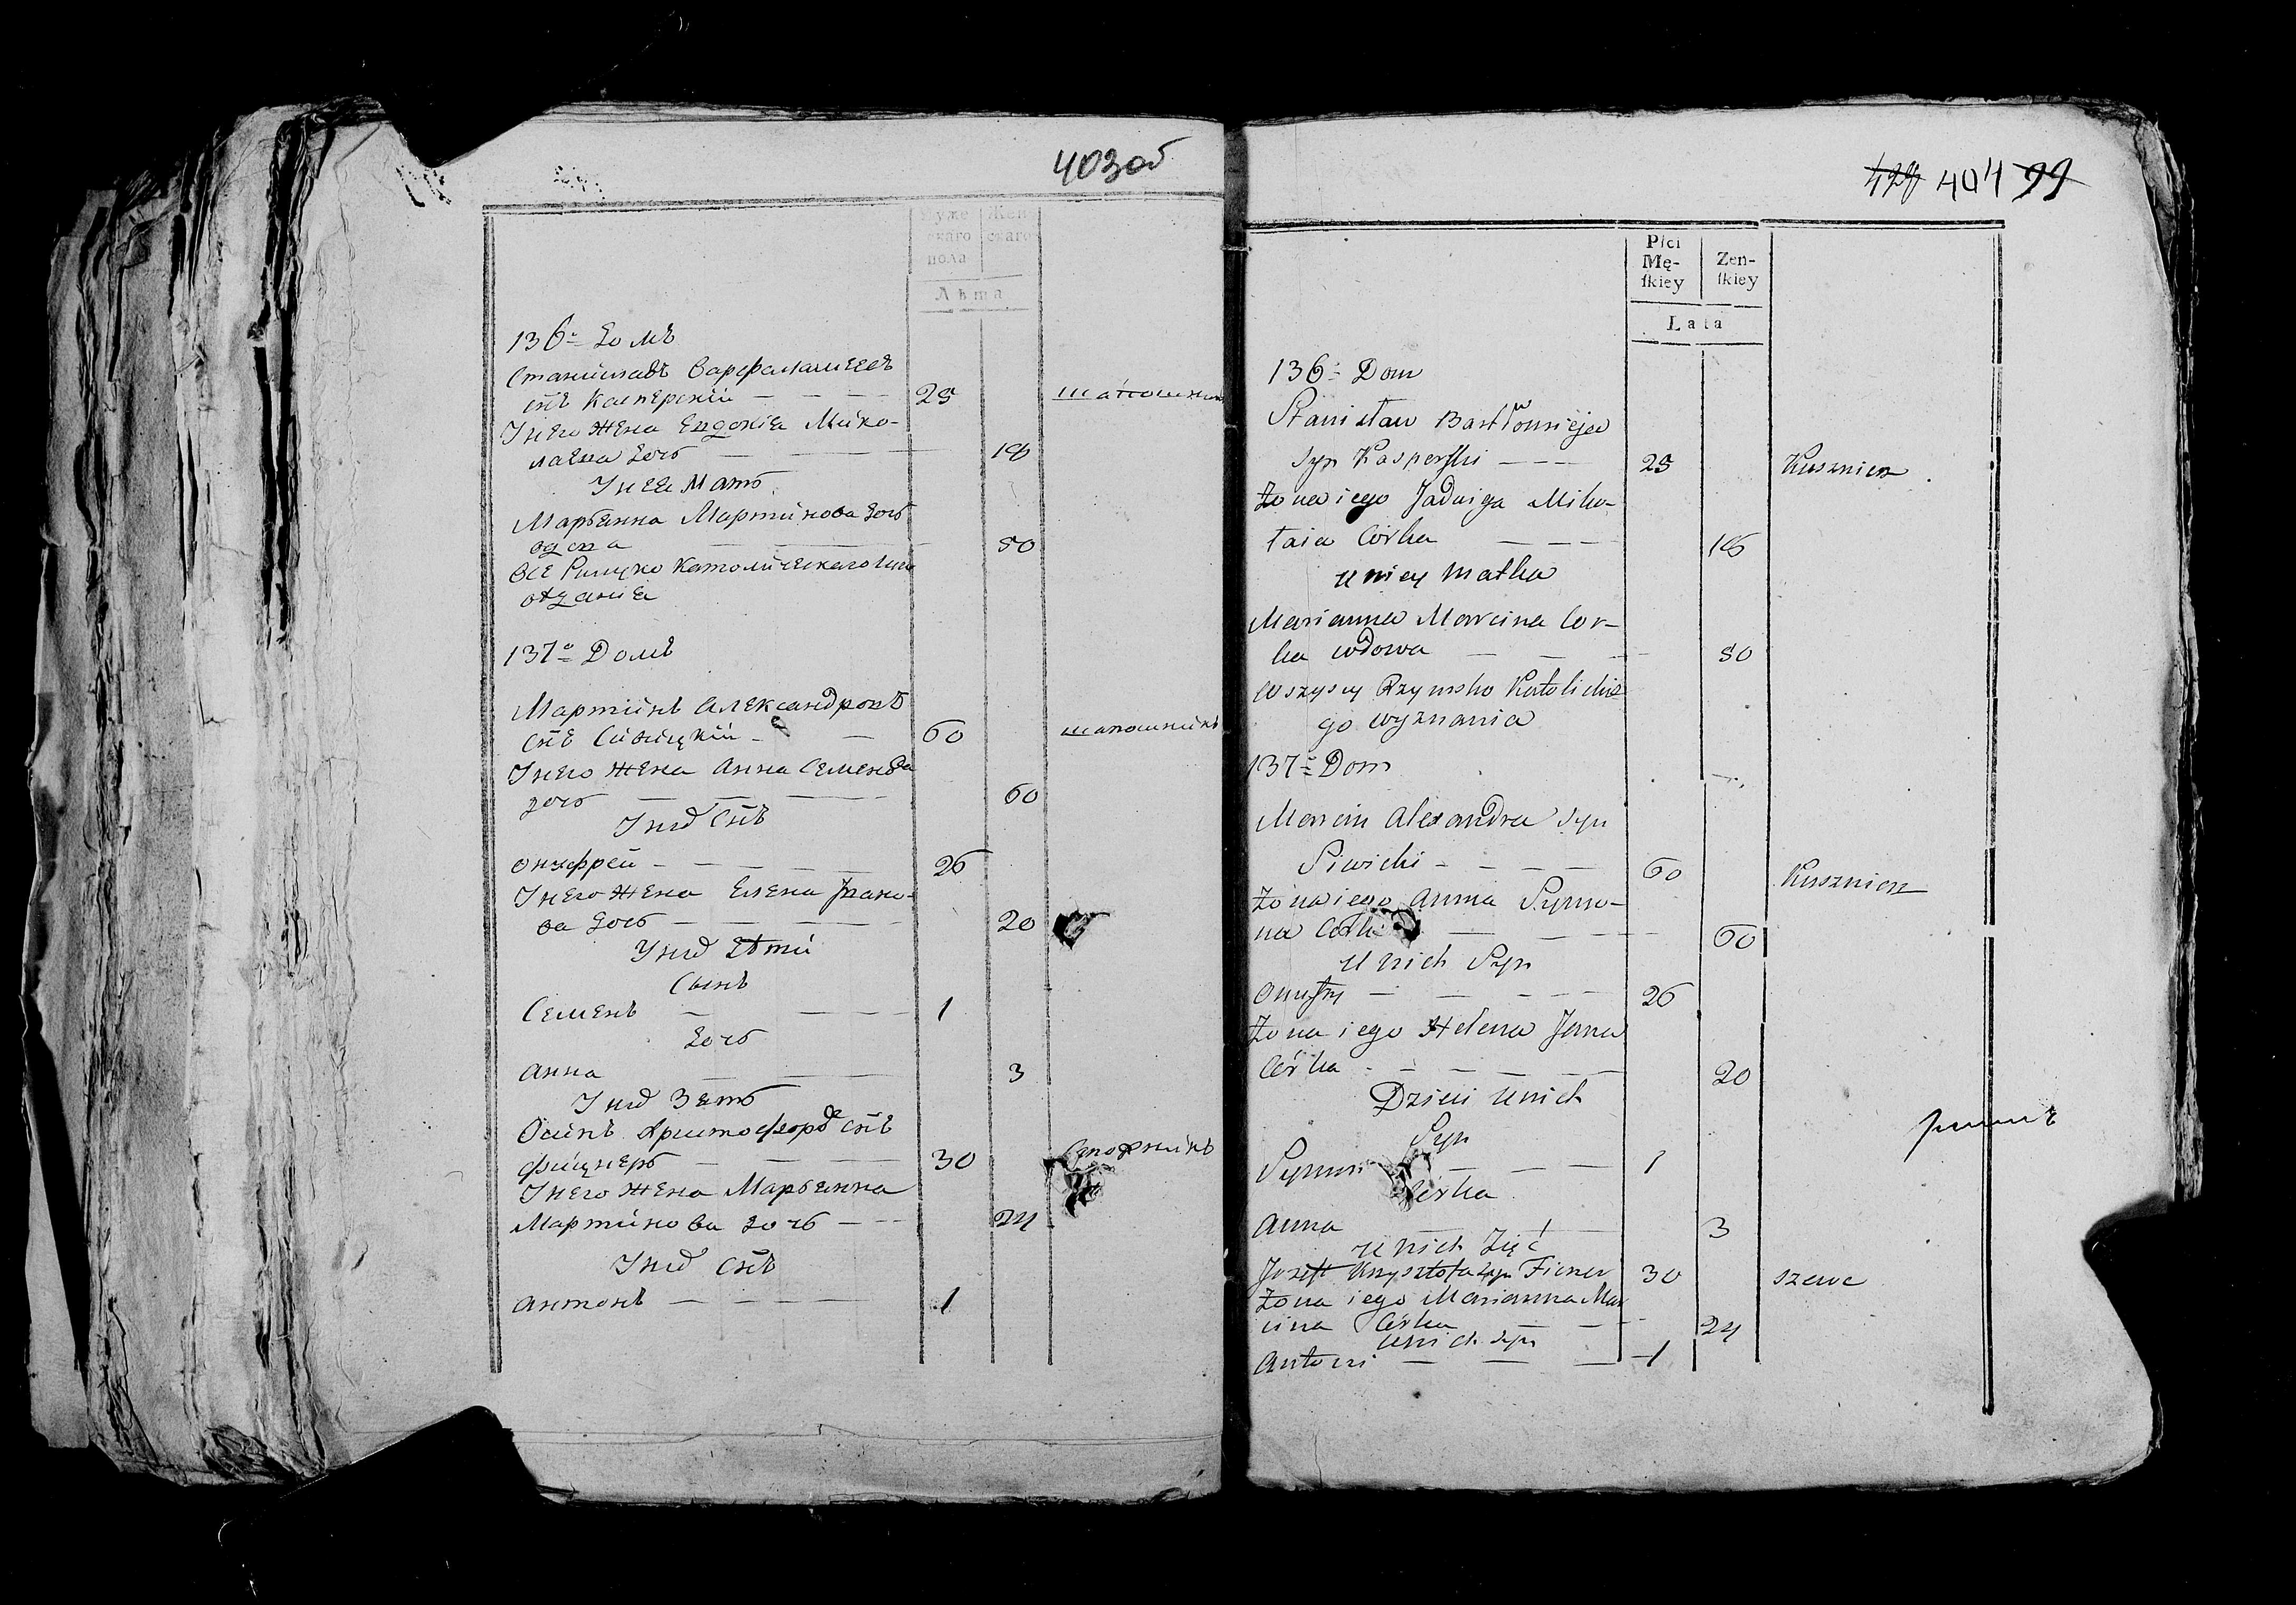 403об
Муже
скаго
пола
Жен
скаго
Лѣта
136. Домъ
Станиславъ Варфаламѣевъ
снъ Касперскій — — — 25 шапошникъ
У него жена Евдокіа Мико-
лаева дочь — — — 18
У нее мать
Марьянна Мартинова дочь
вдова — — — 50
Все Римско Католическаго
137. Домъ
Мартинъ Александровъ
снъ Сивицкій — — 60 шапошникъ
У него жена Анна Семенова
дочь — — — 60
У нихъ снъ
Онуфрей — — — 26
У него жена Елена Ивано-
ва дочь — — — 20
У нихъ дѣти
Сынъ
Семенъ — — — 1
Дочь
Анна — — 3
У нихъ зять
Осипъ Христофоровъ снъ
Фицнеръ — — — 30 Сапожникъ
У него жена Марьянна
Мартинова дочь — — 24
У нихъ снъ
Антонъ — — — 1
404 99
Płci
Mę-
ſkiey
Zen-
ſkiey
Lata
136. Dom
Stanisław Bartłomieja
Syn Kasperski — — — 25 Kusznierz
Żona iego Jadwiga Miko-
łaia Córka — — — 18
U niey Matka
Marianna Marcina Cór-
ka wdowa — — — 50
Wszyscy Rzymsko Katolickie
go wyznania
137. Dom
Marcin Alexandra Syn
Siwicki — — — — 60 Kusznierz
Żona iego Anna Szymo-
na Córka — — — 60
U nich Syn
Onufry — — — — 26
Żona iego Helena Jana
Córka — — — — 20
Dzieci u nich
Syn
Szymon — — — 1
Córka
Anna — — 3
U nich Zięć
Jozeff Krzysztofa Syn Ficner 30 szewc
Żona iego Marianna Mar
cina Córka — — 24
U nich Syn
Antoni — — — 1